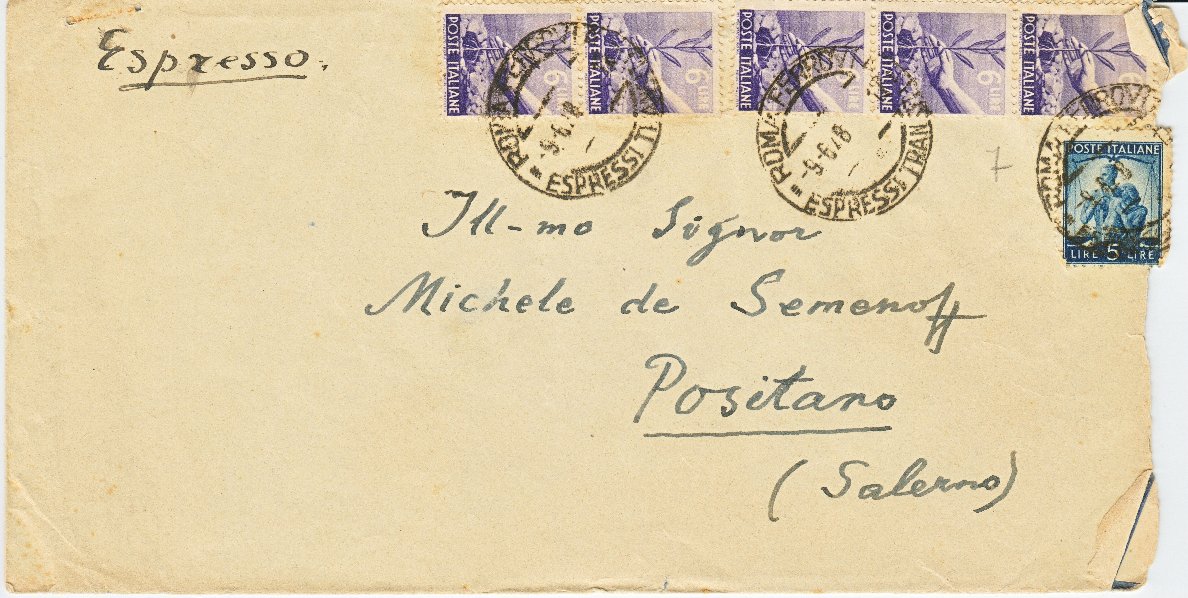 Espresso.
POSTE ITALIANE
6 LIRE
POSTE ITALIANE
6 LIRE
POSTE ITALIANE
6 LIRE
POSTE ITALIANE
6 LIRE
POSTE ITALIANE
ROMA FERROVIA
ESPRESSI
-9-6.48
ROMA FERROVIA
ESPRESSI
-9-6.48
7
POSTE ITALIANE
LIRE 5 LIRE
Ill-mo Signor
Michele de Semenoff
Positano
(Salerno)